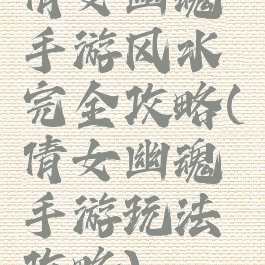 倩女幽魂
手游风水
完全攻略(
倩女幽魂
手游玩法
攻略)